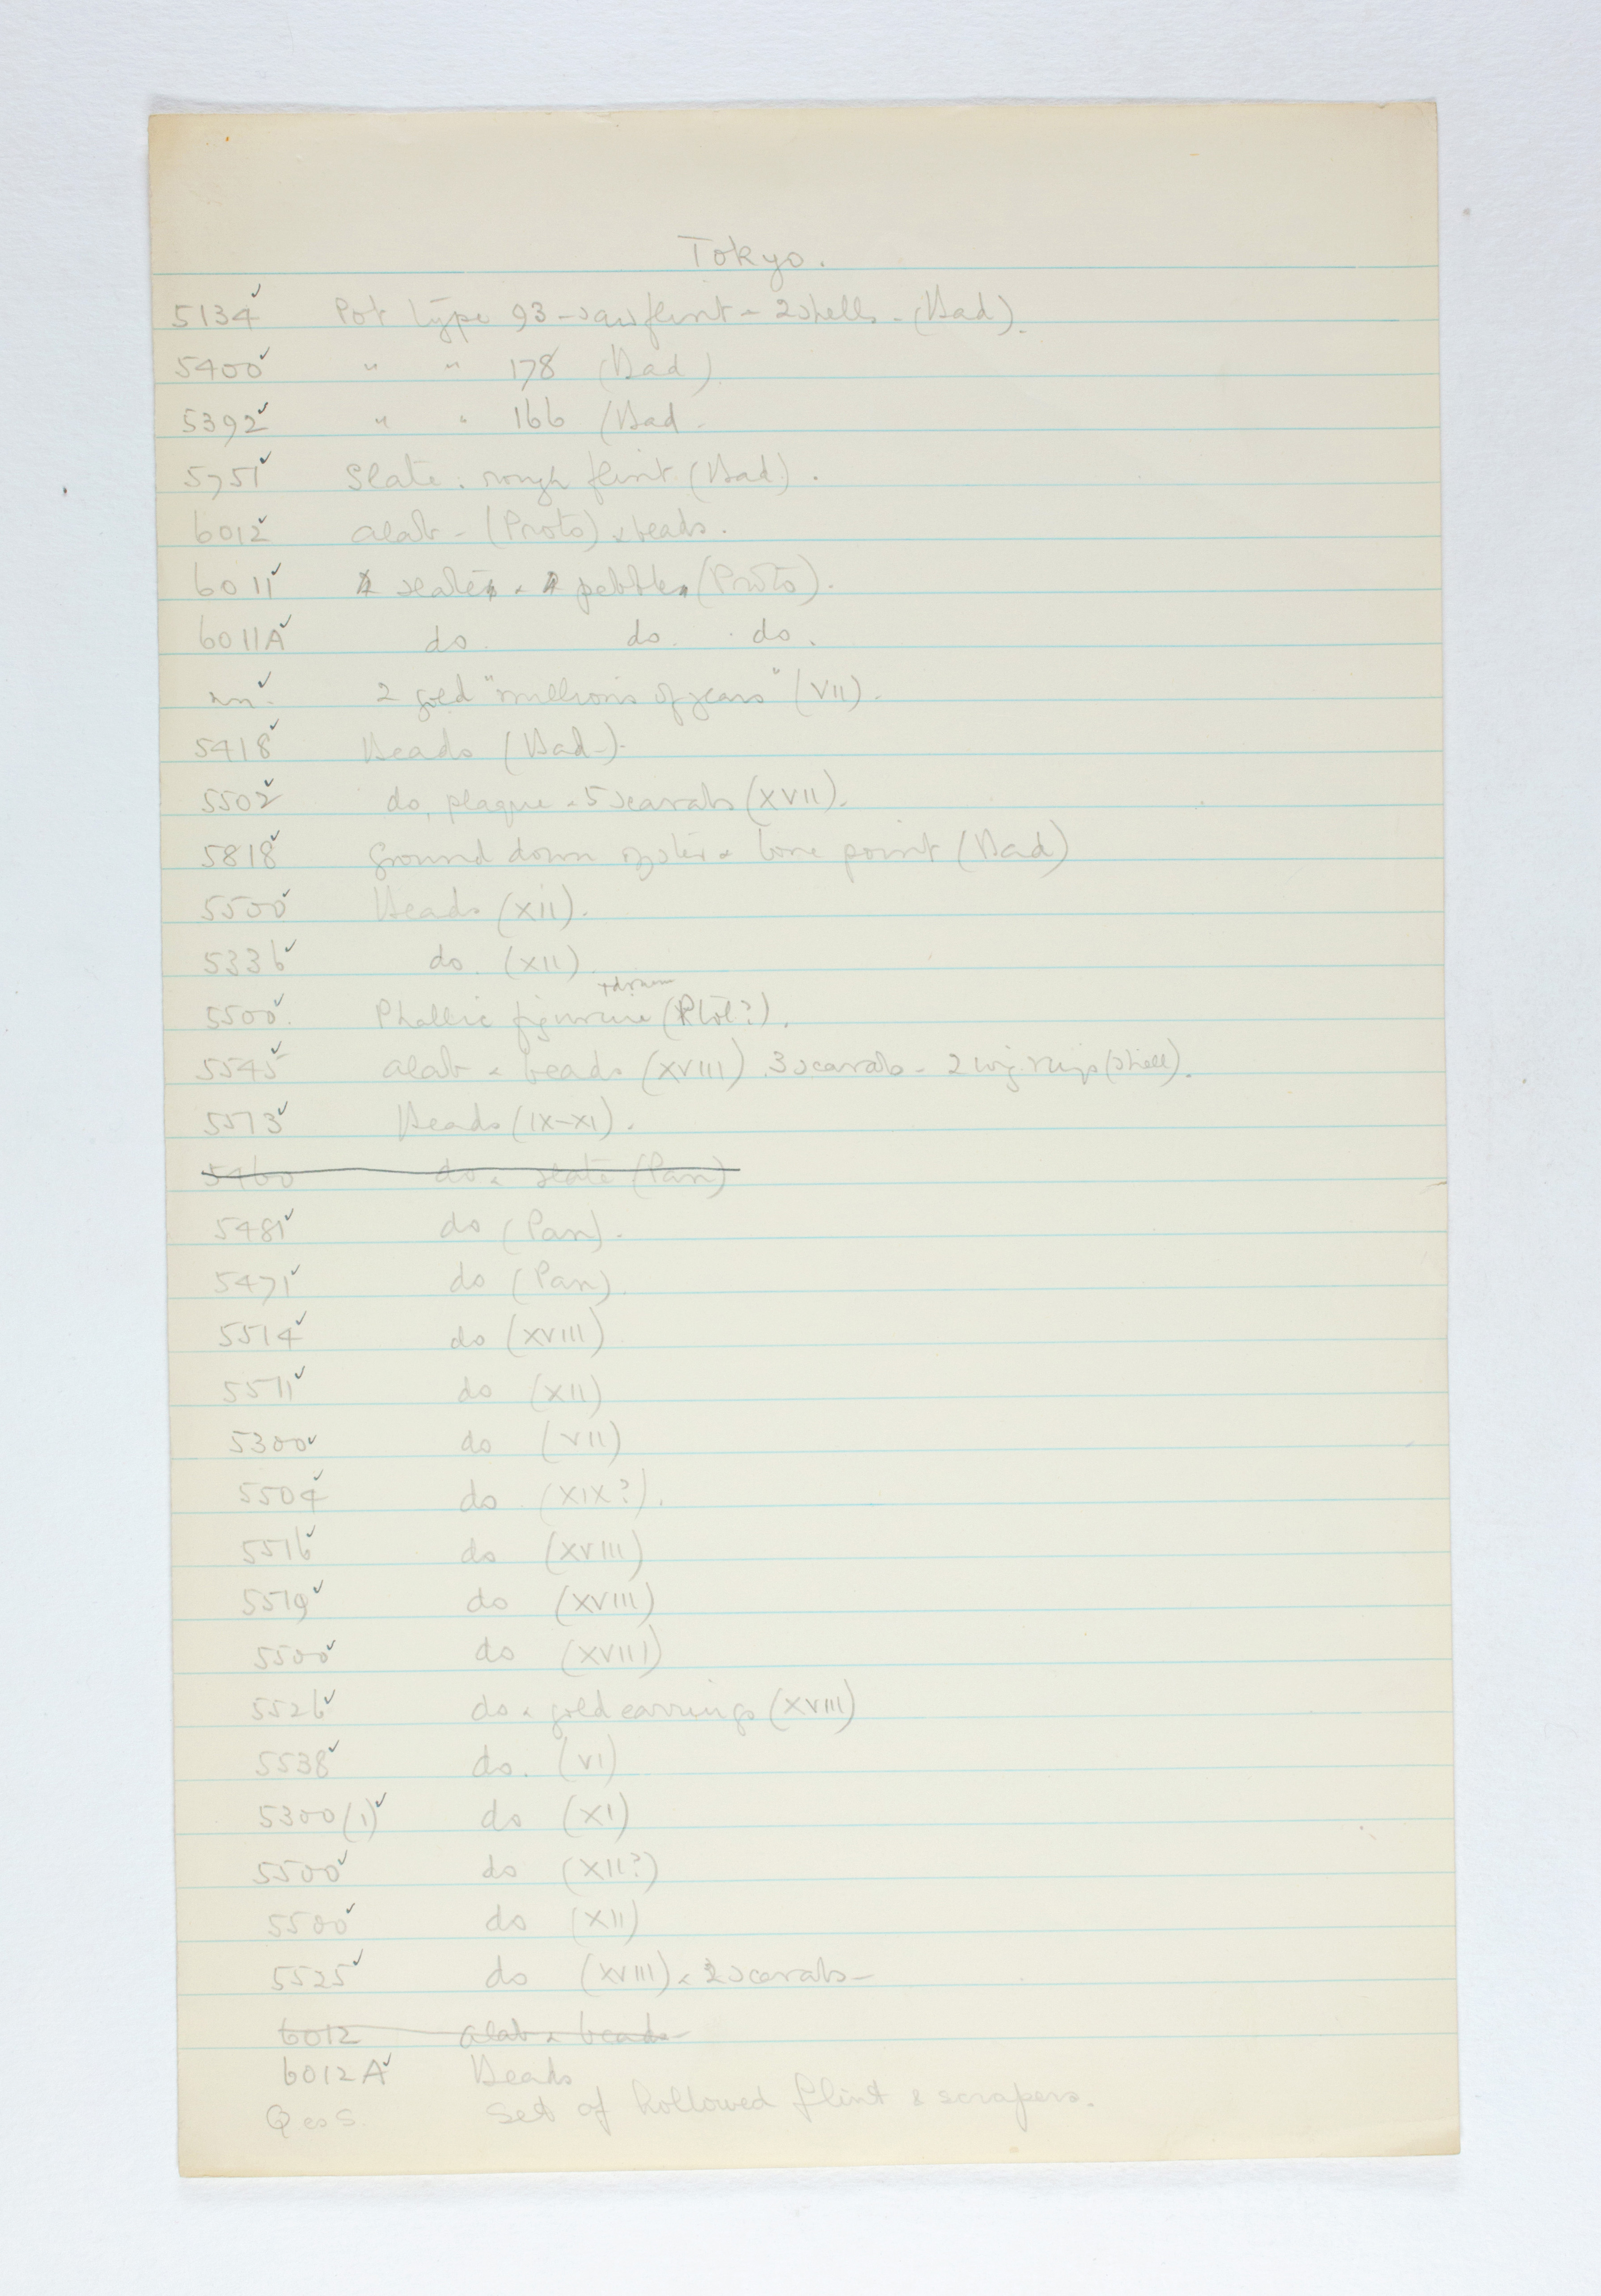 Tokyo.
5134 ✓ Pot type 93 - saw flint & 2 shells - (Bad).
5400 ✓ " " 178 (Bad).
5392 ✓ " " 166 (Bad -
5751 ✓ Slate. rough flint (Bad).
6012 ✓ alab - (Proto) & beads.
6011 ✓ slate & pebble (Proto).
6011A ✓ do. do. do.
✓ 2 gold "millions of years" (VII).
5418 ✓ Beads (Bad-).
5502 ✓ do, plaque & 5 scarabs (XVII).
5818 ✓ ground down oyster & bone point (Bad)
5500 ✓ Beads (XII).
5336 ✓ do. (XII).
5500 ✓ Phallic figurine (Ptol?).
5545 ✓ alab & beads (XVIII). 3 scarabs - 2 wig rings (shell).
5513 ✓ Beads (IX-XI).
5460 do & slate (Pan)
5481 ✓ do (Pan).
5471 ✓ do (Pan).
5514 ✓ do (XVIII)
5511 ✓ do (XII)
5300 ✓ do (VII)
5504 ✓ do (XIX?).
5516 ✓ do (XVIII)
5519 ✓ do (XVIII)
5500 ✓ do (XVIII)
5526 ✓ do & gold earrings (XVIII)
5538 ✓ do. (VI)
5300(1) ✓ do (XI)
5500 ✓ do (XII?)
5500 ✓ do (XII)
5525 ✓ do (XVIII) & 2 scarabs -
6012 alab & beads
6012A ✓ Beads
Q es S. Set of hollowed flint & scrapers.